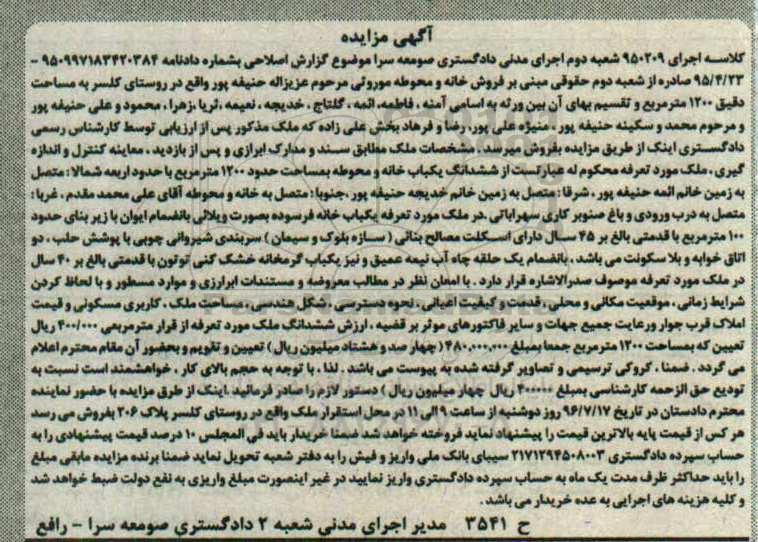 آگهی مزایده
کلاسه اجرای ۹۵۰۲۰۹ شعبه دوم اجرای مدنی دادگستری صومعه سرا موضوع گزارش اصلاحی بشماره دادنامه ۹۵۰۹۹۷۱۸۳۴۲۰۳۸۴ -
۹۵/۴/۲۳ صادره از شعبه دوم حقوقی مبنی بر فروش خانه و محوطه موروثی مرحوم عزیزاله حنیفه پور واقع در روستای کلسر به مساحت
دقیق ۱۲۰۰ مترمربع و تقسیم بهای آن بین ورثه به اسامی آمنه ، فاطمه، ائمه ، گلتاج ، خدیجه ، نعیمه ،ثریا ،زهرا ، محمود و علی حنیفه پور
و مرحوم محمد و سکینه حنیفه پور ، منیژه علی پور، رضا و فرهاد بخش علی زاده که ملک مذکور پس از ارزیابی توسط کارشناس رسمی
دادگستری اینک از طریق مزایده بفروش میرسد . مشخصات ملک مطابق سند و مدارک ابرازی و پس از بازدید ، معاینه کنترل و اندازه
گیری ، ملک مورد تعرفه محکوم له عبارتست از ششدانگ یکباب خانه و محوطه بمساحت حدود ۱۲۰۰ مترمربع با حدود اربعه شمالا : متصل
به زمین خانم ائمه حنیفه پور ، شرقا : متصل به زمین خانم خدیجه حنیفه پور ،جنوبا : متصل به خانه و محوطه آقای علی محمد مقدم ، غربا :
متصل به درب ورودی و باغ صنوبر کاری سهراباتی .در ملک مورد تعرفه یکباب خانه فرسوده بصورت ویلائی بانضمام ایوان با زیر بنای حدود
۱۰۰ مترمربع با قدمتی بالغ بر ۴۵ سال دارای اسکلت مصالح بنائی ( سازه بلوک و سیمان ) سربندی شیروانی چوبی با پوشش حلب ، دو
اتاق خوابه و بلا سکونت می باشد ، بانضمام یک حلقه چاه آب نیمه عمیق و نیز یکباب گرمخانه خشک کنی توتون با قدمتی بالغ بر ۴۰ سال
در ملک مورد تعرفه موصوف صدرالاشاره قرار دارد . با امعان نظر در مطالب معروضه و مستندات ابرارزی و موارد مسطور و با لحاظ کردن
شرایط زمانی ، موقعیت مکانی و محلی ، قدمت و کیفیت اعیانی ، نحوه دسترسی ، شکل هندسی ، مساحت ملک ، کاربری مسکونی و قیمت
املاک قرب جوار ورعایت جمیع جهات و سایر فاکتورهای موثر بر قضیه ، ارزش ششدانگ ملک مورد تعرفه از قرار مترمربعی ۴۰۰/۰۰۰ ریال
تعیین که بمساحت ۱۲۰۰ مترمربع جمعا بمبلغ ۴۸۰،۰۰۰،۰۰۰ ( چهار صد و هشتاد میلیون ریال ) تعیین و تقویم و بحضور آن مقام محترم اعلام
می گردد . ضمنا ، کروکی ترسیمی و تصاویر گرفته شده به پیوست می باشد . لذا ، با توجه به حجم بالای کار ، خواهشمند است نسبت به
تودیع حق الزحمه کارشناسی بمبلغ ۴۰۰۰۰۰۰ ریال چهار میلیون ریال ) دستور لازم را صادر فرمائید .اینک از طریق مزایده با حضور نماینده
محترم دادستان در تاریخ ۹۶/۷/۱۷ روز دوشنبه از ساعت ۹ الی ۱۱ در محل استقرار ملک واقع در روستای کلسر پلاک ۲۰۶ بفروش می رسد
هر کس از قیمت پایه بالاترین قیمت را پیشنهاد نماید فروخته خواهد شد ضمنا خریدار باید فی المجلس ۱۰ درصد قیمت پیشنهادی را به
حساب سپرده دادگستری ۲۱۷۱۲۹۴۵۰۸۰۰۳ سیبای بانک ملی واریز و فیش را به دفتر شعبه تحویل نماید ضمنا برنده مزایده مابقی مبلغ
را باید حداکثر ظرف مدت یک ماه به حساب سپرده دادگستری واریز نمایید در غیر اینصورت مبلغ واریزی به نفع دولت ضبط خواهد شد
و کلیه هزینه های اجرایی به عده خریدار می باشد .
ح ۳۵۴۱ مدیر اجرای مدنی شعبه ۲ دادگستری صومعه سرا - رافع